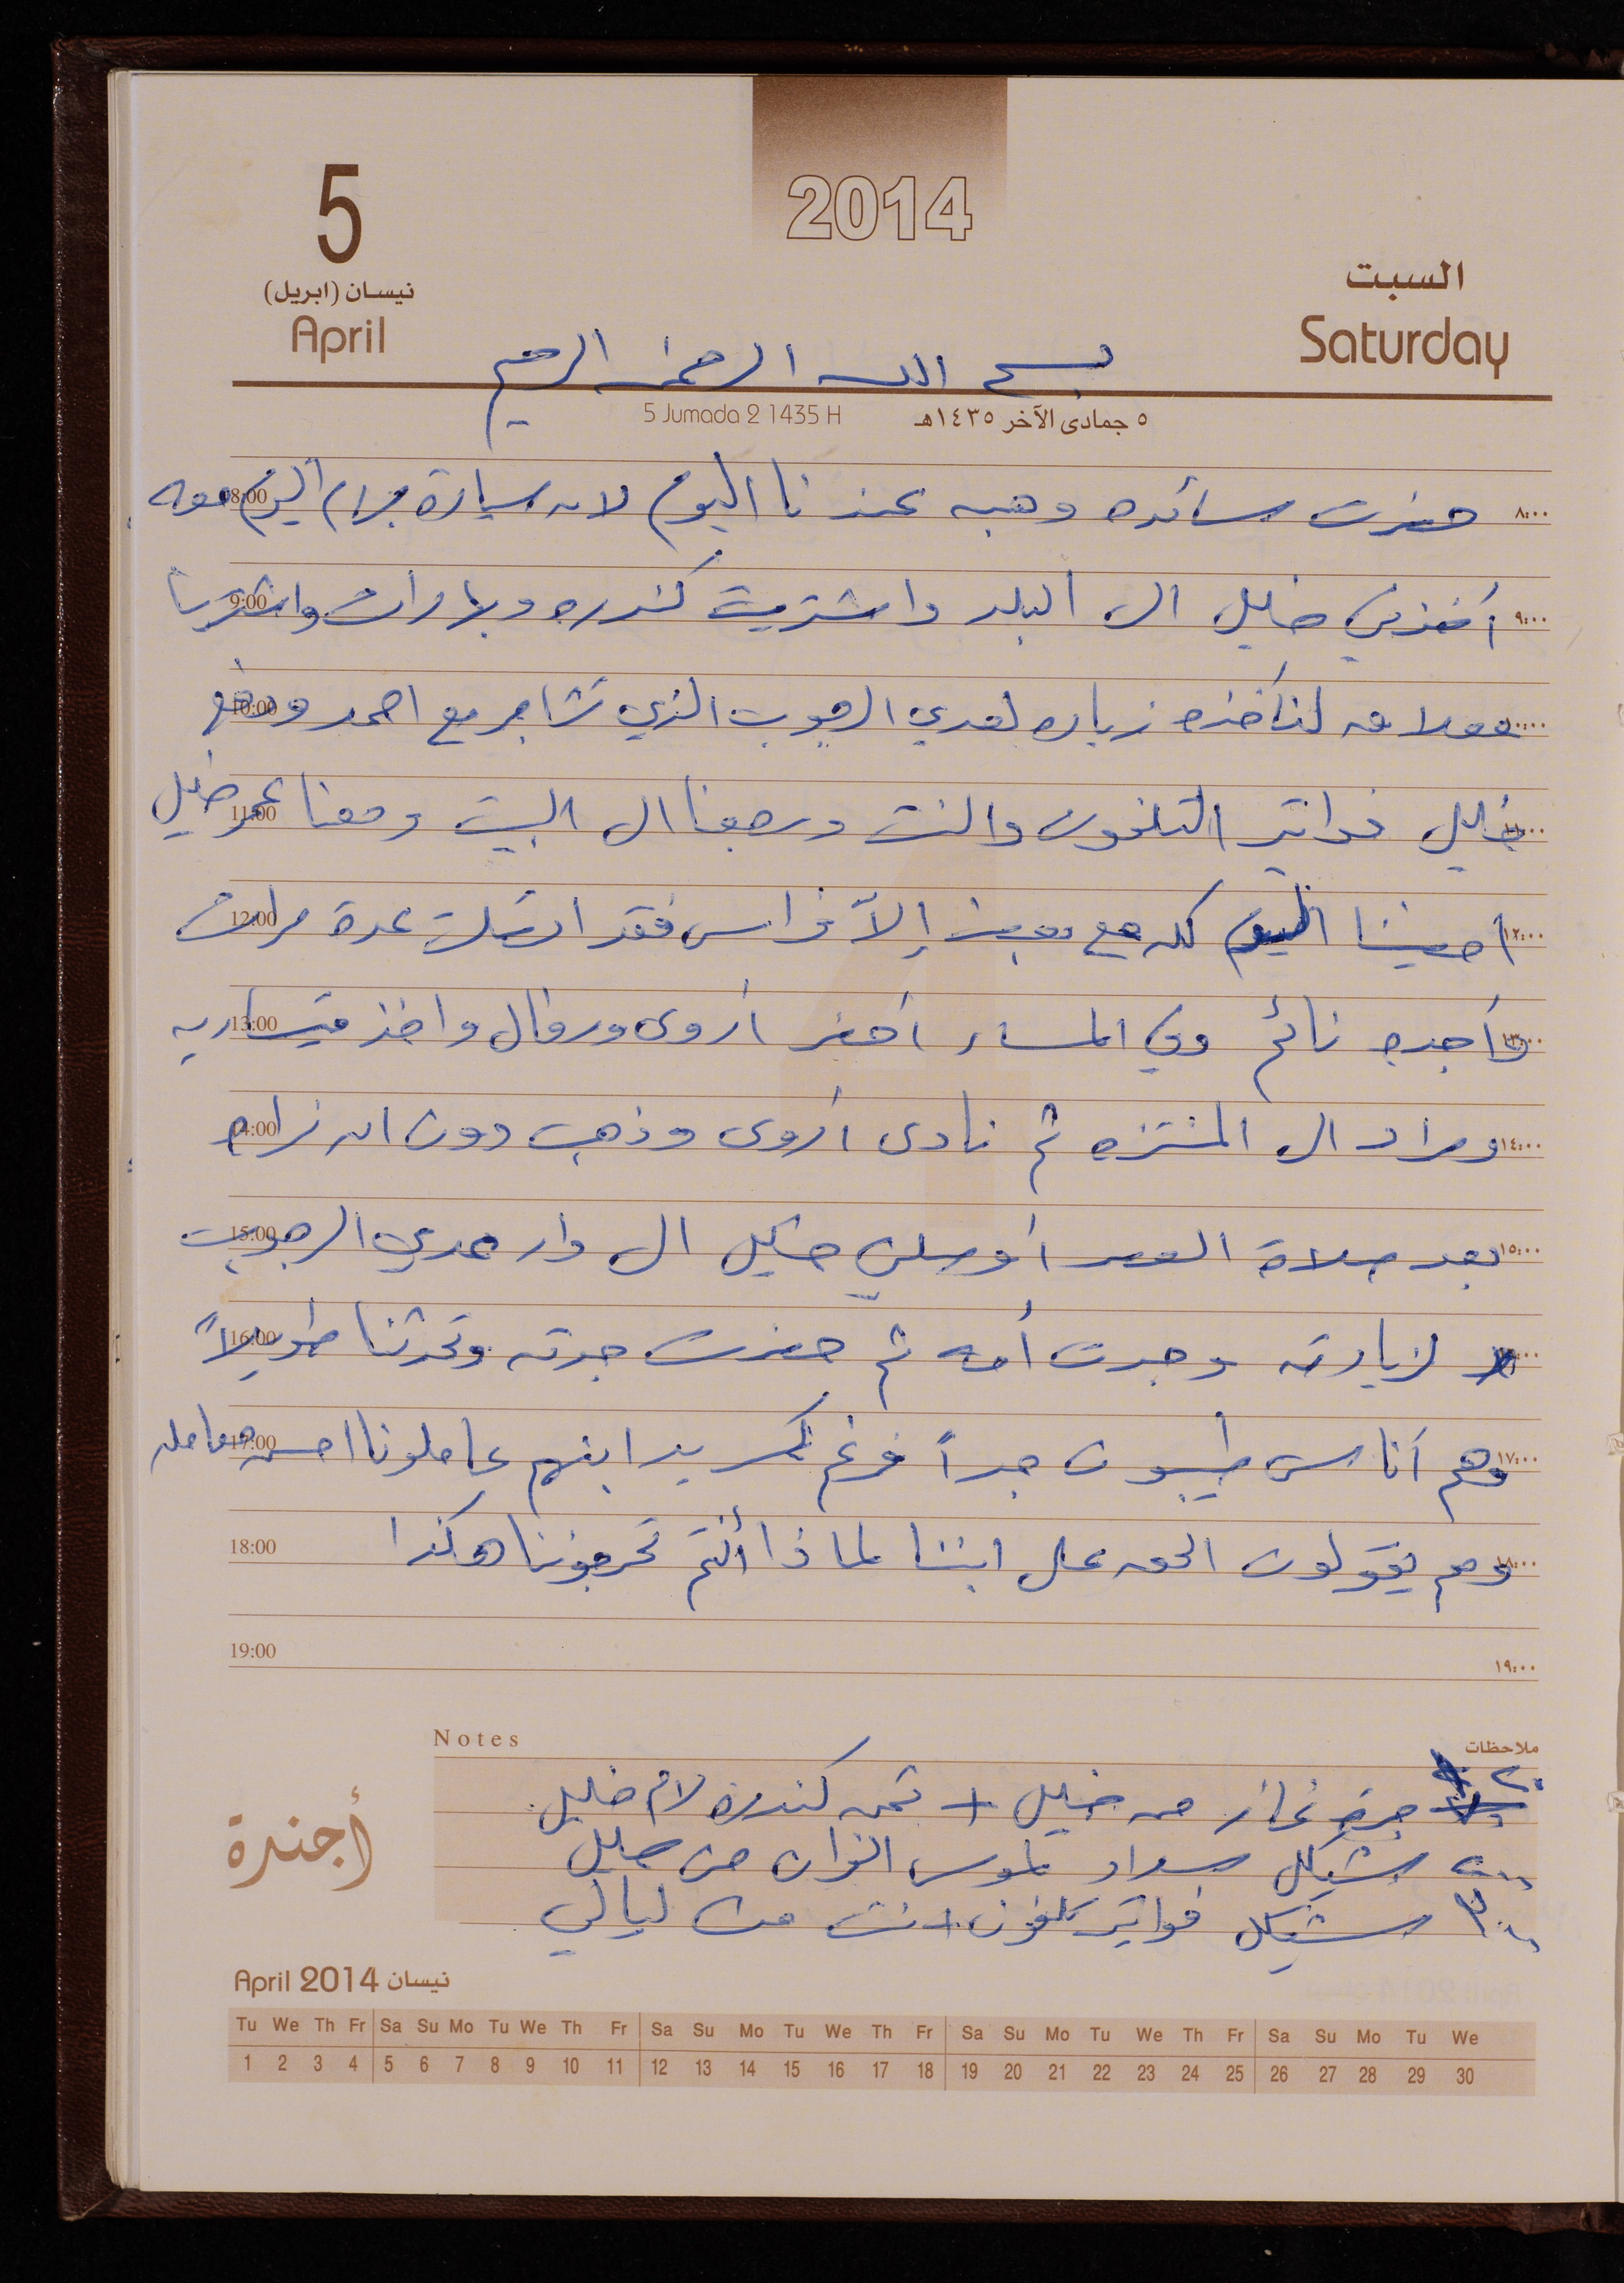 2014
5
نيسان (ابريل)
April
السبت
Saturday
بسم الله الرحمن الرحيم
5 Jumada 2 1435 H
٥ جمادى الآخر ١٤٣٥هـ
٨:٠٠ حضرت سائده وهبه عندنا اليوم لان سيارة مرام اليوم معه 08:00
٩:٠٠ أخذني خليل الى البلد واشتريت كندره وجرادات واشترينا 9:00
لنأخذه زياره لعدي الرجوب الذي تشاجر مع احمد ودفع 10:00
خليل فواتير التلفون والنت ورجعنا الى البيت ومعنا عمر خليل 11:00
١٢:٠٠ امضينا اليوم كله مع بعض إلا فراس فقد اتصلت عدة مرات 12:00
وأجده نائم وفي المساء أحضر أروى ونوال واخذ قيساريه 13:00
١٤:٠٠ ومراد الى المنتزه ثم نادى أروى وذهب دون ان نراه 14:00
١٥:٠٠ بعد صلاة العصر أوصلني خليل الى دار عدي الرجوب 15:00
لزيارته وجدت أمه ثم حضرت جدته وتحدثنا طويلاً 16:00
١٧:٠٠ وهم أناس طيبون جداً فرغم كسر يد ابنهم عاملونا احسن معامله 17:00
١٨:٠٠ وهم يقولون الحق على ابننا لماذا أنتم تحرجوننا هكذا 18:00
١٩:٠٠ 19:00
Notes
ملاحظات
جرة غاز من خليل + ثمن كندره لام خليل
٢٠٠ شيكل سداد فلوس القران من خليل
٣٠٠ شيكل فواتير تلفون + نت من ليالي
أجندة
April 2014 نيسان
Tu We Th Fr Sa Su Mo Tu We Th Fr Sa Su Mo Tu We Th Fr Sa Su Mo Tu We Th Fr Sa Su Mo Tu We
1 2 3 4 5 6 7 8 9 10 11 12 13 14 15 16 17 18 19 20 21 22 23 24 25 26 27 28 29 30